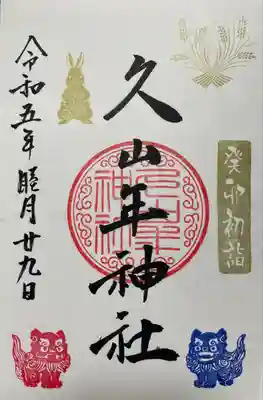 癸卯初詣
久山年神社
令和五年睦月廿九日